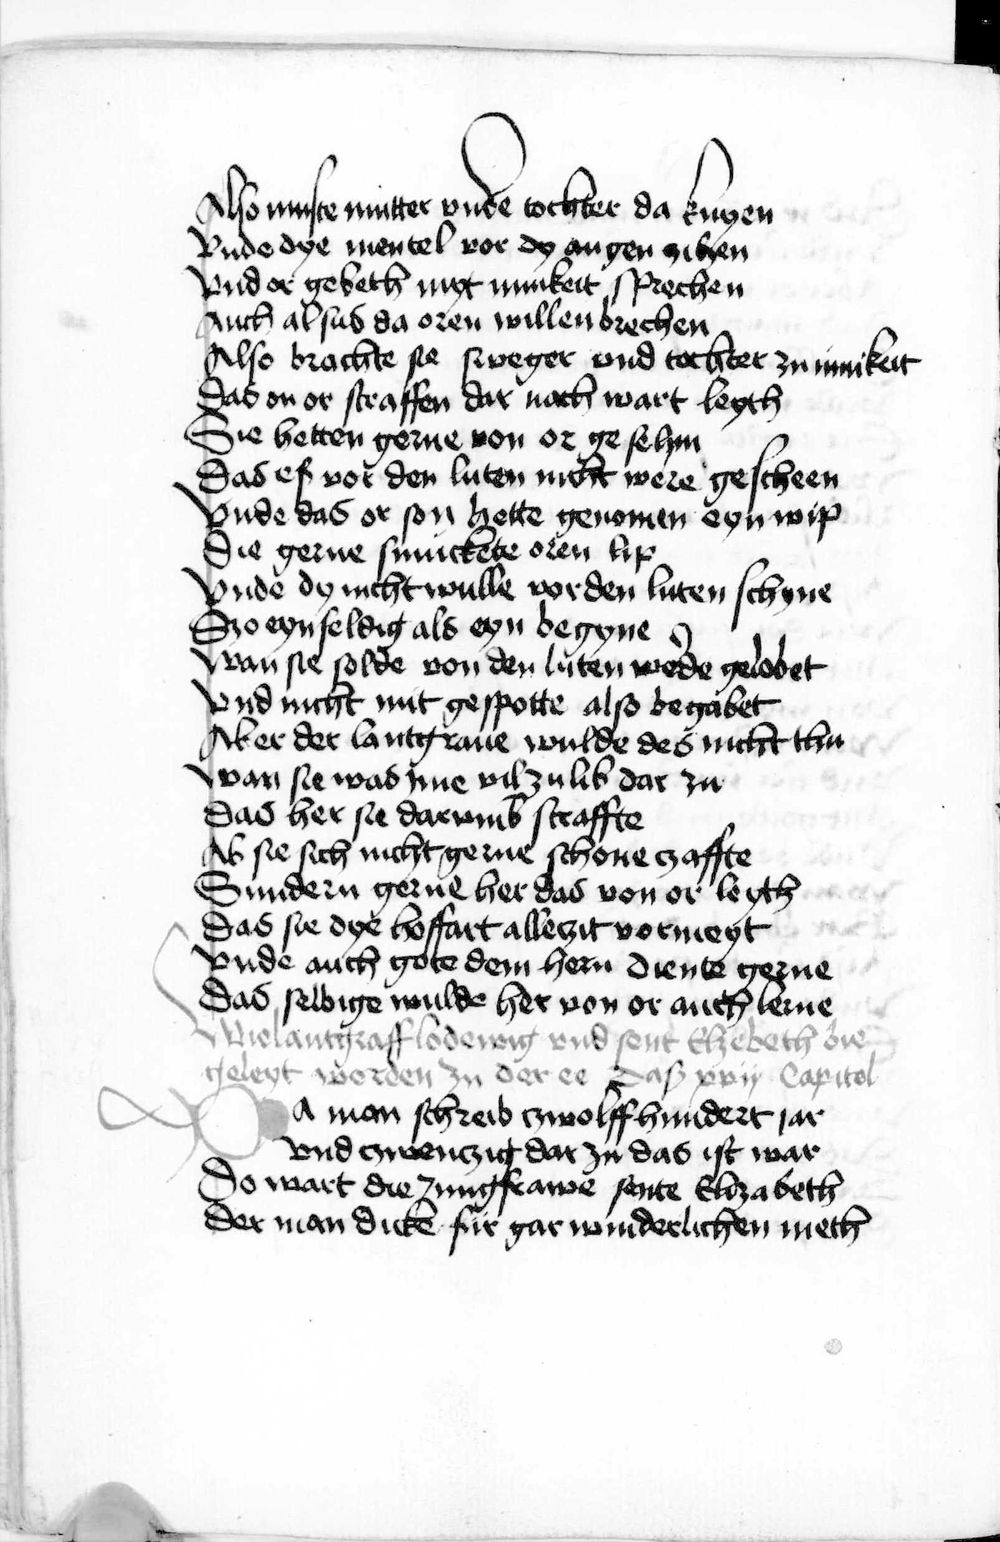 Also muste mutter vnde tochter da knyen
Vnde dye mentel vor dy augen zihen
Vnd or gebeth myt innikeit sprechen
Auch alsus da oren willen brechen
Also brachte sie sweger vnd tochter zu innikeit
Das on or straffen dar nach wart leyth
Sie hetten gerne von or gesehin
Das eß vor den luten nicht were gescheen
Vnde das or son hette genomen eyn wip
Die gerne smuckete oren lip
Vnde dy nicht wulle vor den luten schyne
Szo eynfeldig als eyn begyne
Wan sie solde von den luten werde gelobet
Vnd nicht mit gespotte also begabet
Aber der lantgraue wulde des nicht thu
Wan sie was ime vil zu lib dar zu
Das her sie darumb straffte
Ab sie sich nicht gerne schone czaffte
Sundern gerne her das von or leyth
Das sie dye hoffart alleczit vormeyt
Vnde auch gote dem hern diente gerne
Das selbige wulde her von or auch lerne
Wie lantgraff lodewig vnd sent Elzebeth bie
geleyt worden zu der ee Daß xvij Capitel
Da man schreib czwolffhundert jar
vnd czwenczig dar zu das ist war
Do wart die Jungfrawe sente Elizabeth
Der man dicke für gar wunderlichen meth